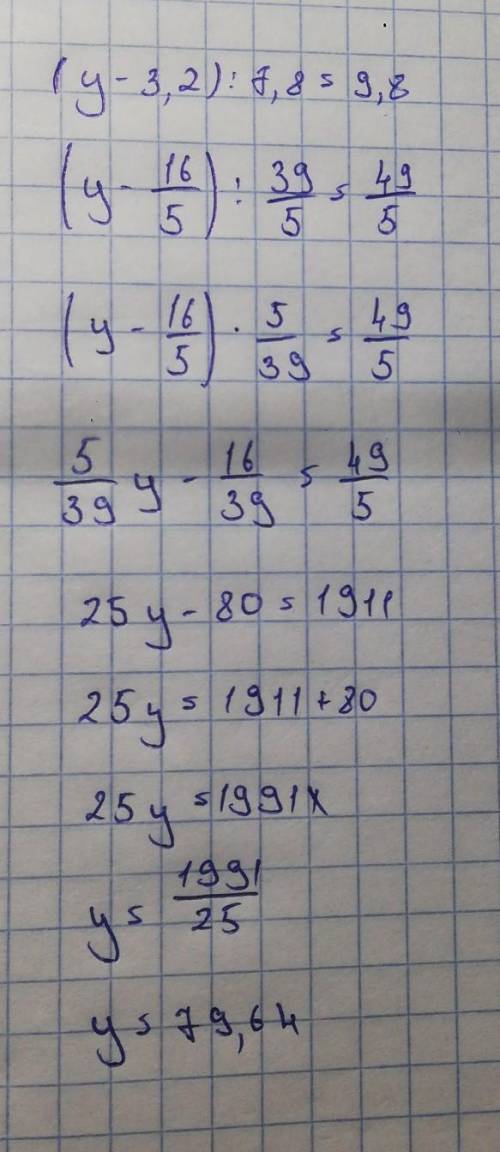 (y - 3,2) : 7,8 = 9,8
(y - 16/5) : 39/5 = 49/5
(y - 16/5) · 5/39 = 49/5
5/39 y - 16/39 = 49/5
25y - 80 = 1911
25y = 1911 + 80
25y = 1991
y = 1991/25
y = 79,64